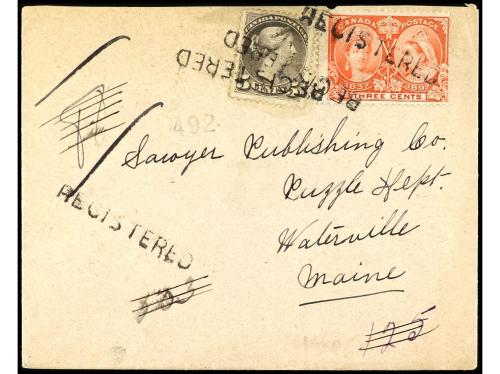 CANADA POSTAGE
CENTS
CANADA POSTAGE
1837 1897
THREE CENTS
REGISTERED
REGISTERED
492
Sawyer Publishing Co.
Puzzle Dept.
Waterville
Maine
REGISTERED
125